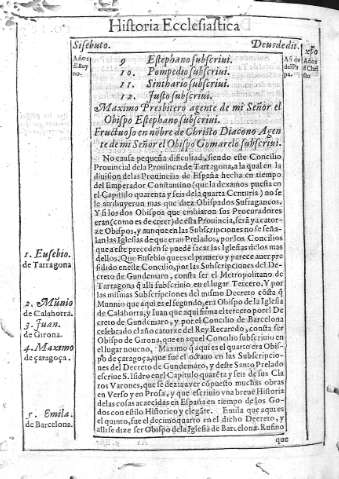 Historia Ecclesiastica
Sisebuto. Deusdedit.
Años Rey no.
9 Estephano subscriui.
10. Pompedio subscriui.
11. Sinthario subscriui.
12. Justo subscriui.
Maximo Presbitero agente de mi Señor el
Obispo Estephano subscriui.
Fructuoso en nõbre de Christo Diacono Agen
te de mi Señor el Obispo Gomarelo subscriui.
No causa pequeña dificultad, siendo este Concilio
Prouincial de la Prouincia de Tarragona, a la qual en la
diuision de las Prouincias de España hecha en tiempo
del Emperador Constantino (que la dexamos puesta en
el Capitulo quarenta y seis de la quarta Centuria) no se
le atribuyeron mas que diez Obispados Sufraganeos.
Y si los dos Obispos que embiaron sus Procuradores
eran (como es de creer) de esta Prouincia, serã ya cator-
ze Obispos, y aunque en las Subscripciones no se seña-
lan las Iglesias de que eran Prelados, por los Concilios
que a este preceden se puede sacar las Iglesias de los mas
dellos. Que Eusebio que es el primero y parece auer pre
sidido en este Concilio, por las Subscripciones del De-
creto de Gundemaro, consta ser el Metropolitano de
Tarragona q̃ alli subscriuio en el lugar Tercero. Y por
las mismas Subscripciones del mismo Decreto cõsta q̃
Munnio que aqui es el segundo, era Obispo de la Iglesia
de Calahorra, y Iuan que aqui firma el tercero por el De
creto de Gundemaro, y por el Concilio de Barcelona
celebrado el año catorze del Rey Recaredo, consta ser
Obispo de Girona, que en aquel Concilio subscriuio en
el lugar noueno, Maximo q̃ aqui es el quarto era Obis-
po de çaragoça, que fue el octauo en las Subscripcio-
nes del Decreto de Gundemaro, y deste Santo Prelado
escriue S. Isidro en el Capitulo quarẽta y seis de sus Cla
ros Varones, que se dezia auer cõpuesto muchas obras
en Verso y en Prosa, y que escriuio vna breue Historia
de las cosas acaecidas en España en tiempo de los Go-
dos con estilo Historico y elegãte. Emila que aqui es
el quinto, fue el decimoquarto en el dicho Decreto, y
alli se dize ser Obispo de la Iglesia de Barcelona. Rufino
que
1. Eusebio.
de Tarragona
2. Munio
de Calahorra.
3. Juan.
de Girona.
4. Maximo
de çaragoça.
5. Emila.
de Barcelona.